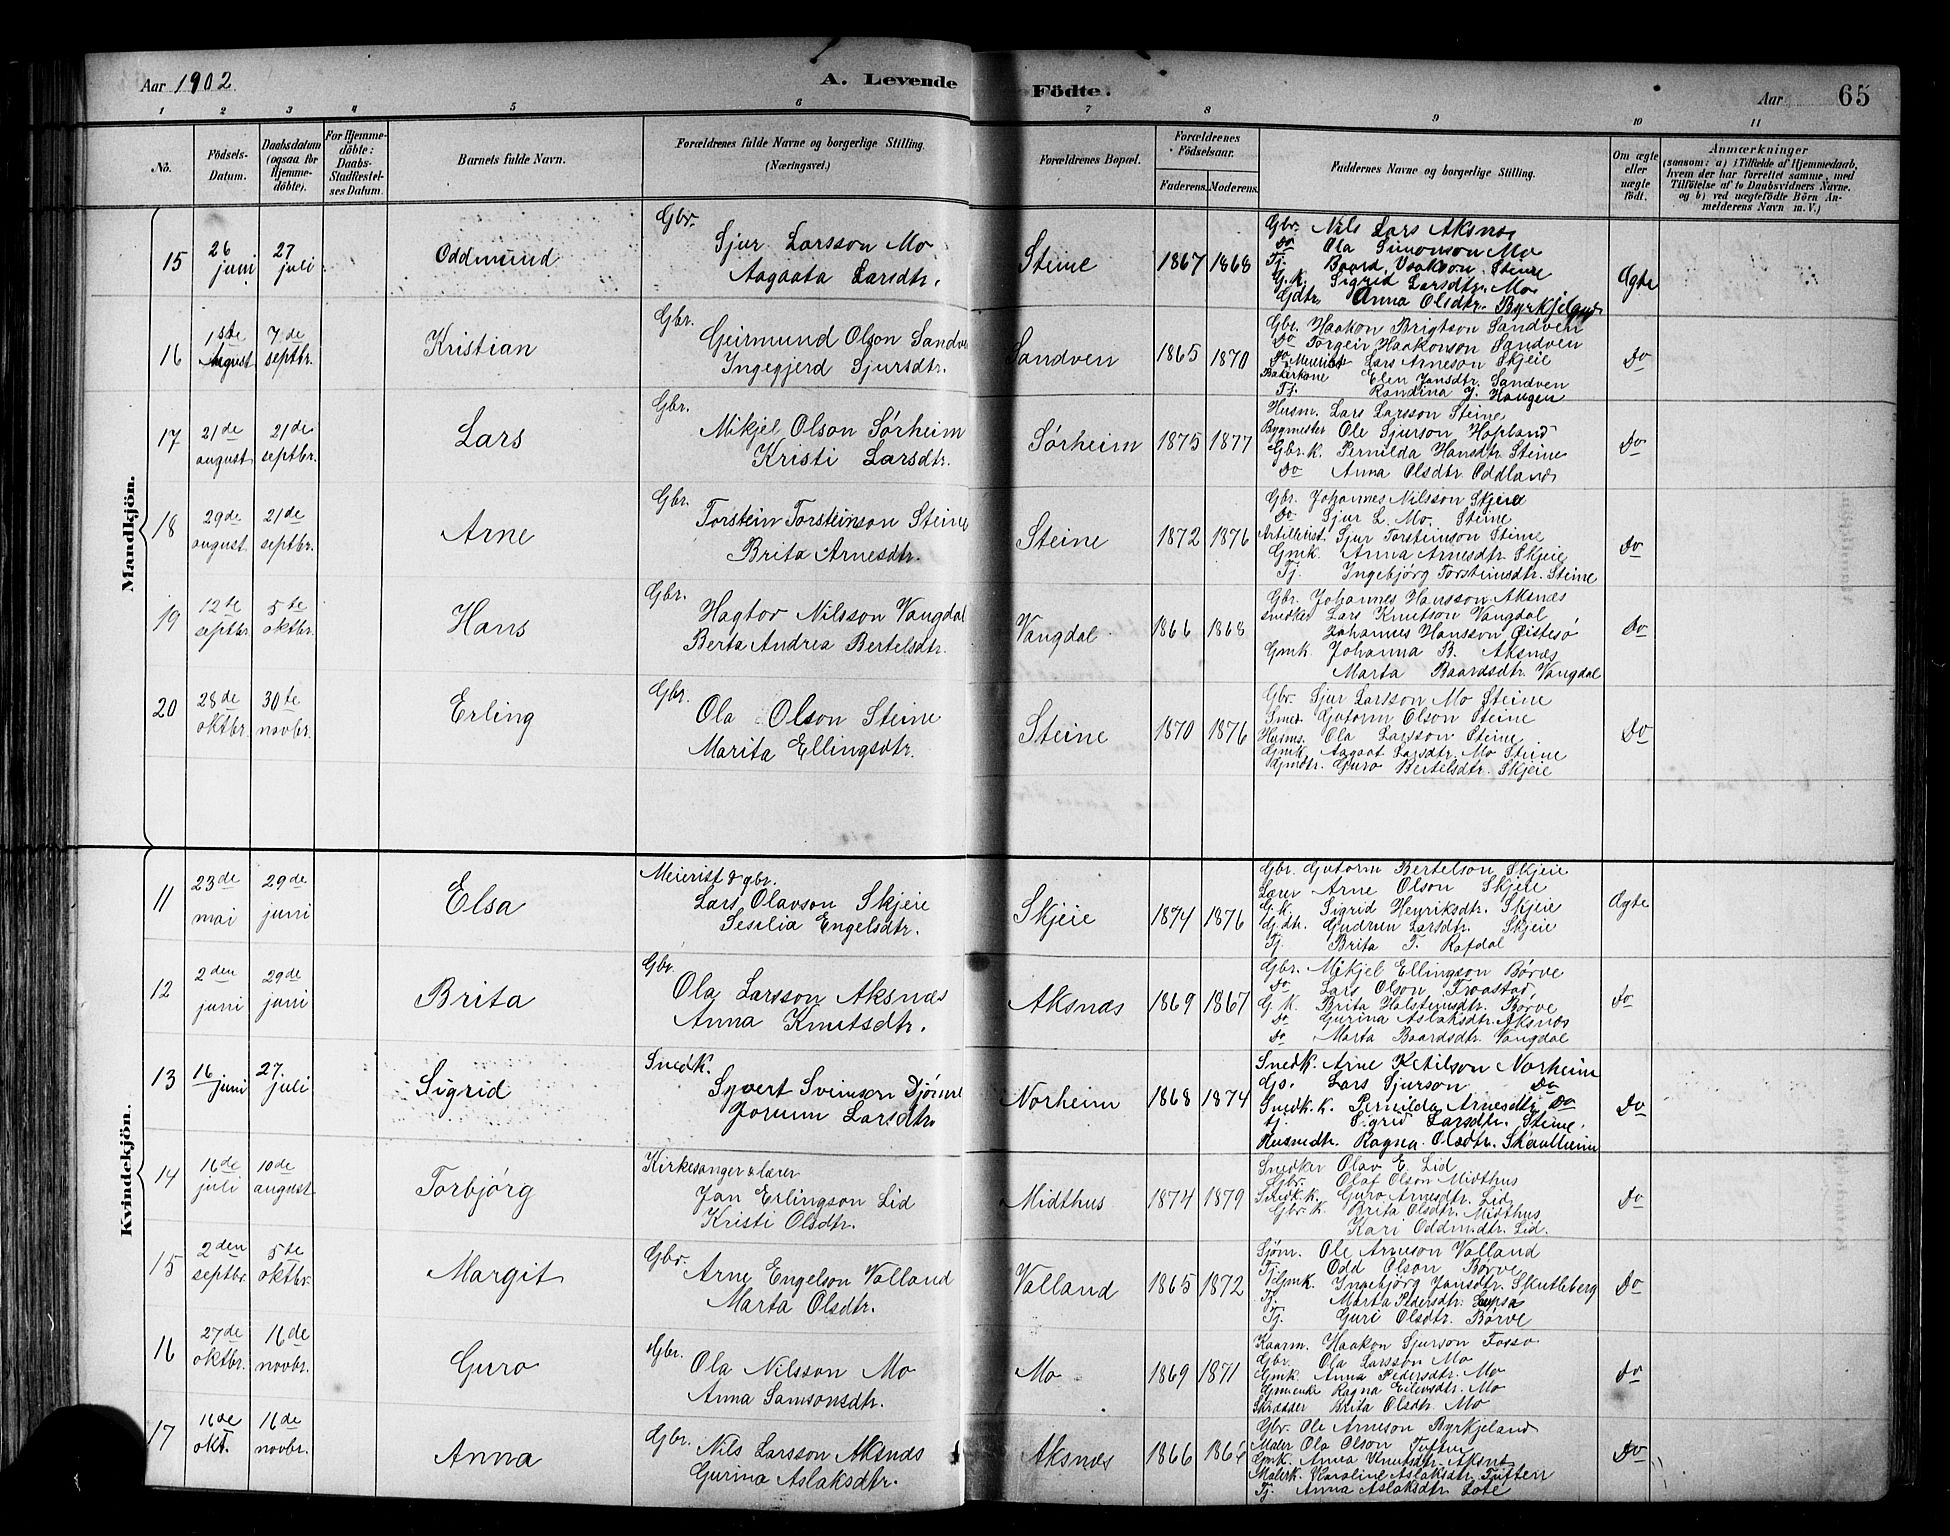 Aar 1902. A. Levende Födte. Aar 65
1 2 3 4 5 6 7 8 9 10 11
No. Födsels-Datum. Daabsdatum (ogsaa for Hjemme-döbte). For Hjemme-döbte: Daabs-Stadfæstel-ses Datum. Barnets fulde Navn. Forældrenes fulde Navne og borgerlige Stilling. (Næringsvei.) Forældrenes Bopæl. Forældrenes Födselsaar. Faderens. Moderens. Faddernes Navne og borgerlige Stilling. Om ægte eller uægte födt. Anmærkninger
(saasom: a) i Tilfælde af Hjemmedaab,
hvem der har forrettet samme, med
Tilföielse af to Daabsvidners Navne.
og b) ved uægtefödte Börn An-
melderens Navn m. V.)
Mandkjön.
15 26 juni 27 juli Oddmund Gbr. Sjur Larsson Mo
Aagaata Larsdtr. Steine 1867 1868 Ægte
Gbr. Nils Lars Aksnæs
Do Ola Simonson Mo
Tj. Baard Steine
G.K. Sigrid Larsdtr. Mo
Gdtr. Anna Olsdtr. Byrkjeland
16 1ste August 7de septbr. Kristian Gbr. Geirmund Olson Sandven
Ingegjerd Sjursdtr. Sandven 1865 1870 Do
Gbr. Haakon Brigtson Sandven
Do Torgeir Haakonson Sandven
Do Meierist Lars Arneson Skjeie
Bakerkone Elen Jansdtr. Sandven
Tj. Randina J. Haugen
17 21de august 21de septbr. Lars Gbr. Mikjel Olson Sørheim
Kristi Larsdtr. Sørheim 1875 1877 Do
Husm. Lars Larsson Steine
Bygmester Ole Sjurson Hopland
Gbr. K. Pernilda Hansdtr. Steine
Do Anna Olsdtr. Oddland
18 29de august 21de septbr. Arne Gbr. Torstein Torsteinson Steine
Brita Arnesdtr. Steine 1872 1876 Do
Gbr. Johannes Nilsson Skjeie
Do Sjur L. Mo. Steine
Artillerist Sjur Torsteinson Steine
Gmk. Anna Arnesdtr. Skjeie
Tj. Ingebjörg Torsteinsdtr. Steine
19 12te septbr. 5te oktbr. Hans Gbr. Hagtor Nilsson Vangdal
Berta Andrea Bertelsdtr. Vangdal 1866 1868 Do
Gbr. Johannes Hansson Aksnæs
Snedker Lars Knutson Vangdal
Johannes Hansson Østesø
Gmk. Johanna B. Aksnæs
Marta Baardsdtr. Vangdal
20 28de oktbr. 30te novbr. Erling Gbr. Ola Olson Steine
Marita Ellingsdtr. Steine 1870 1876 Do
Gbr. Sjur Larsson Mo Steine
Smed Gutorm Olson Steine
Husm. Ola Larsson Steine
Gmk. Aagaat Larsdtr. Mo Steine
Gmdtr. Guro Bertelsdtr. Skjeie
Kvindekjön.
11 23de mai 29de juni Elsa Meierist & gbr. Lars Olavson Skjeie
Sesilia Engelsdtr. Skjeie 1874 1876 Ægte
Gbr. Gutorm Bertelson Skjeie
Lærer Arne Olson Skjeie
G.K. Sigrid Henriksdtr. Skjeie
Gdtr. Gudrun Larsdtr. Skjeie
Tj. Brita T. Rafdal
12 2den juni 29de juni Brita Gbr. Ola Larsson Aksnæs
Anna Knutsdtr. Aksnæs 1869 1867 Do
Gbr. Mikjel Ellingson Børve
Do Lars Olson Traastad
G.K. Brita Halsteinsdtr. Børve
Do Gurina Aslaksdtr. Aksnæs
Do Marta Baardsdtr. Vangdal
13 16 juni 27. juli Sigrid Snedk. Syvert Sveinson Djönne
Jorunn Larsdtr. Norheim 1868 1874 Do
Snedk. Arne Ketilson Norheim
Gb. Lars Sjurson Do
Snedk. k. Pernilda Arnesdtr. Do
tj. Sigrid Larsdtr. Steine.
Husmdtr. Ragna Olsdtr. Skaalheim
14 16de juli 10de august Torbjörg Kirkesanger & lærer Jan Erlingson Lid
Kristi Olsdtr. Midthus 1874 1879 Do
Snedker Olav E. Lid
Gbr. Olaf Olson Midthus
Snedk. k. Guro Arnesdtr. Lid
Gbr. k. Brita Olsdtr. Midthus
Kari Oddm.dtr. Lid.
15 2den septbr. 5te oktbr. Margit Gbr. Arne Engelson Valland
Marta Olsdtr. Valland 1865 1872 Do
Sjøm. Ole Arneson Valland
Tj. Odd Olson Børve
Gmk. Ingebjörg Jansdtr. Skutleberg
Tj. Marta Pedersdtr. Lepsø
Tj. Guri Olsdtr. Børve
16 27de oktbr. 16de novbr. Guro Gbr. Ola Nilsson Mo
Anna Samsonsdtr. Mo 1869 1871 Do
Kaarm. Haakon Sjurson Fosso
Gbr. Ola Larsson Mo
Gmk. Anna Pedersdtr. Mo
Gmenke Ragna Eilevsdtr. Mo
Brita Olsdtr. Mo
17 16de okt. 16de novbr. Anna Gbr. Nils Larsson Aksnæs
Gurina Aslaksdtr. Aksnæs 1866 Do
Gbr. Ole Arneson Byrkjeland
Maler Ola Olson Tuften
Gmk. Anna Knutsdtr. Aksnæs
Malerk. Karoline Aslaksdtr. Tuften
Tj. Anna Aslaksdtr. Lote